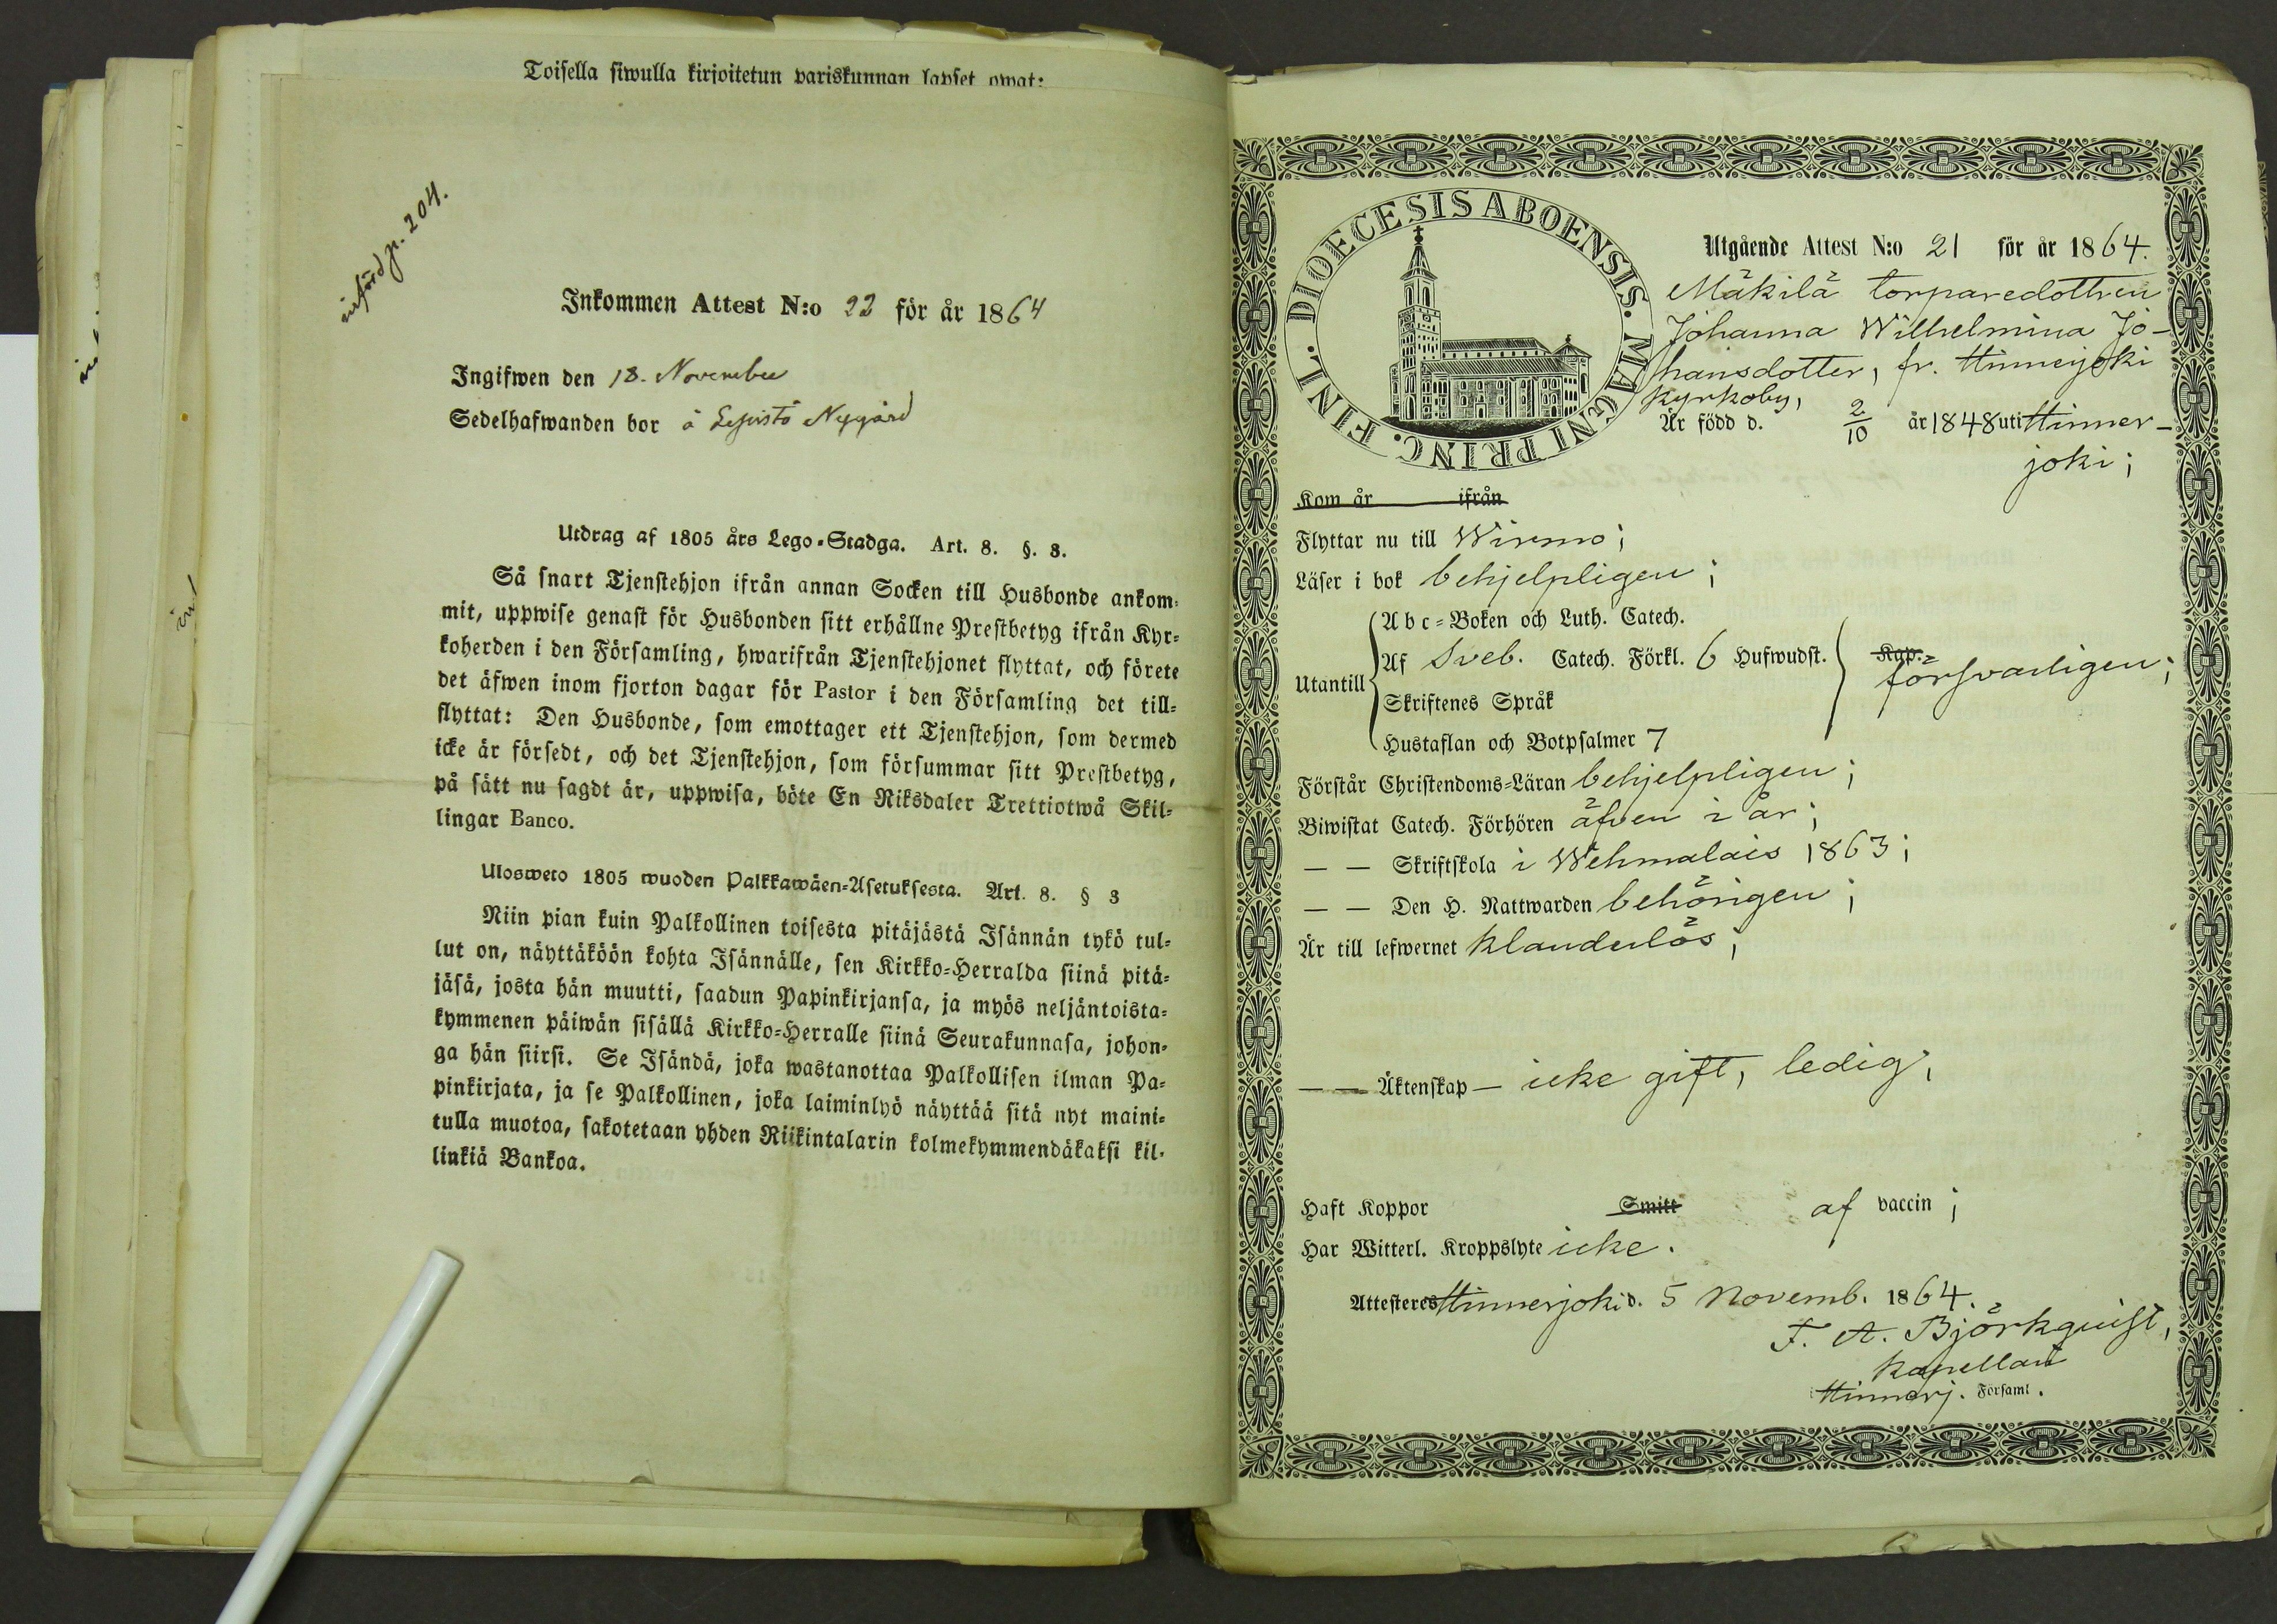 Toisella siwulla kirjoitetun pariskunnan lapset owat:
införd p. 204.
Inkommen Attest N:o 22 för år 1864
Ingifwen den 18. November
Sedelhafwanden bor å Lepistö Nygård
Utdrag af 1805 års Lego-Stadga. Art. 8. §. 3.
Så snart Tjenstehjon ifrån annan Socken till Husbonde ankom-
mit, uppwise genast för Husbonden sitt erhållne Prestbetyg ifrån Kyr-
koherden i den Församling, hwarifrån Tjenstehjonet flyttat, och förete
det äfwen inom fjorton dagar för Pastor i den Församling det till-
flyttat: Den Husbonde, som emottager ett Tjenstehjon, som dermed
icke är försedt, och det Tjenstehjon, som försummar sitt Prestbetyg,
på sätt nu sagdt är, uppwisa, böte En Riksdaler Trettiotwå Skil-
lingar Banco.
Ulosweto 1805 wuoden Palkkawäen-Asetuksesta. Art. 8. § 3
Niin pian kuin Palkollinen toisesta pitäjästä Isännän tykö tul-
lut on, näyttäköön kohta Isännälle, sen Kirkko-Herralda siinä pitä-
jäsä, josta hän muutti, saadun Papinkirjansa, ja myös neljäntoista-
kymmenen päiwän sisällä Kirkko-Herralle siinä Seurakunnasa, johon-
ga hän siirsi. Se Isändä, joka wastanottaa Palkollisen ilman Pa-
pinkirjata, ja se Palkollinen, joka laiminlyö näyttää sitä nyt maini-
tulla muotoa, sakotetaan yhden Riikintalarin kolmekymmendäkaksi kil-
linkiä Bankoa.
DIOECESIS ABOENSIS. MAGNI PRINC. FINL.
Utgående Attest N:o 21 för år 1864.
Mäkilä torparedottren
Johanna Wilhelmina Jo-
hansdotter, fr. Hinnerjoki
kyrkoby,
Är född d. 2/10 år 1848 uti Hinner-
joki;
Kom år ifrån
Flyttar nu till Wirmo;
Läser i bok behjelpligen;
Abc-Boken och Luth. Catech.
Utantill Af Sveb. Catech. Förkl. 6 Hufwudst. Kap. försvarligen;
Skriftenes Språk
Hustaflan och Botpsalmer 7
Förstår Christendoms-Läran behjelpligen;
Biwistat Catech. Förhören äfven i år;
— — Skriftskola i Wehmalais 1863;
— — Den H. Nattwarden behörigen;
Är till lefwernet klanderlös;
— — Äktenskap — icke gift, ledig;
Haft Koppor Smitt af vaccin;
Har Witterl. Kroppslyte icke.
Attesteres Hinnerjoki d. 5 Novemb. 1864.
F. A. Björkquist,
Kapellan
i Hinnerj. Församl.